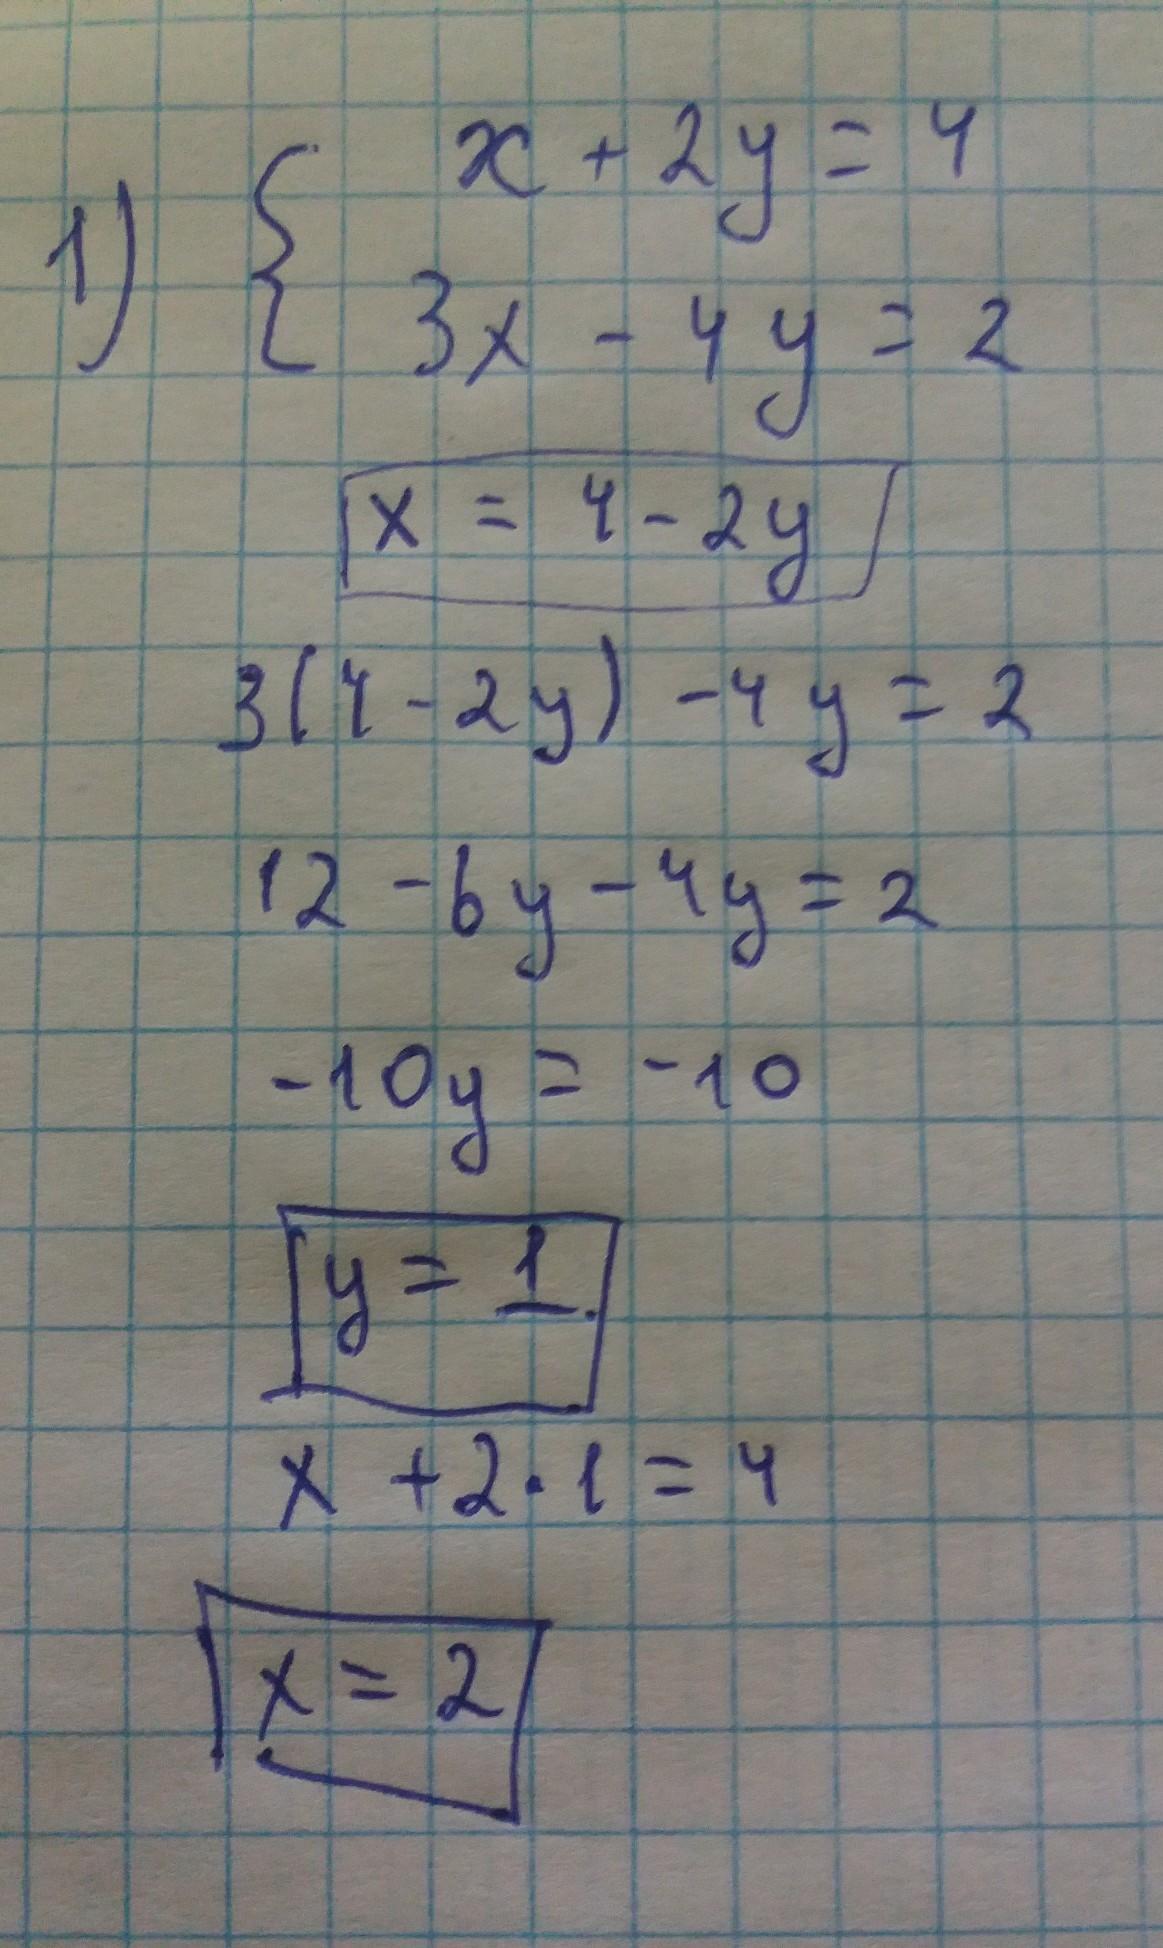 1) { x + 2y = 4
3x - 4y = 2
x = 4 - 2y
3(4 - 2y) - 4y = 2
12 - 6y - 4y = 2
-10y = -10
y = 1
x + 2 · 1 = 4
x = 2